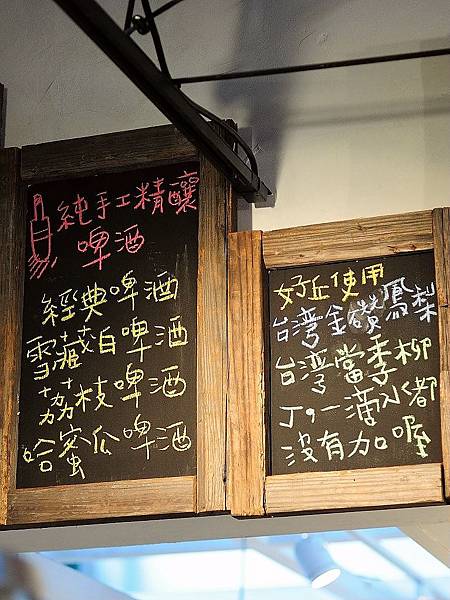 自家
純手工精釀
啤酒
經典啤酒
雪藏白啤酒
荔枝啤酒
哈蜜瓜啤酒
好丘使用
台灣金鑽鳳梨
台灣當季柳
丁,一滴水都
沒有加喔